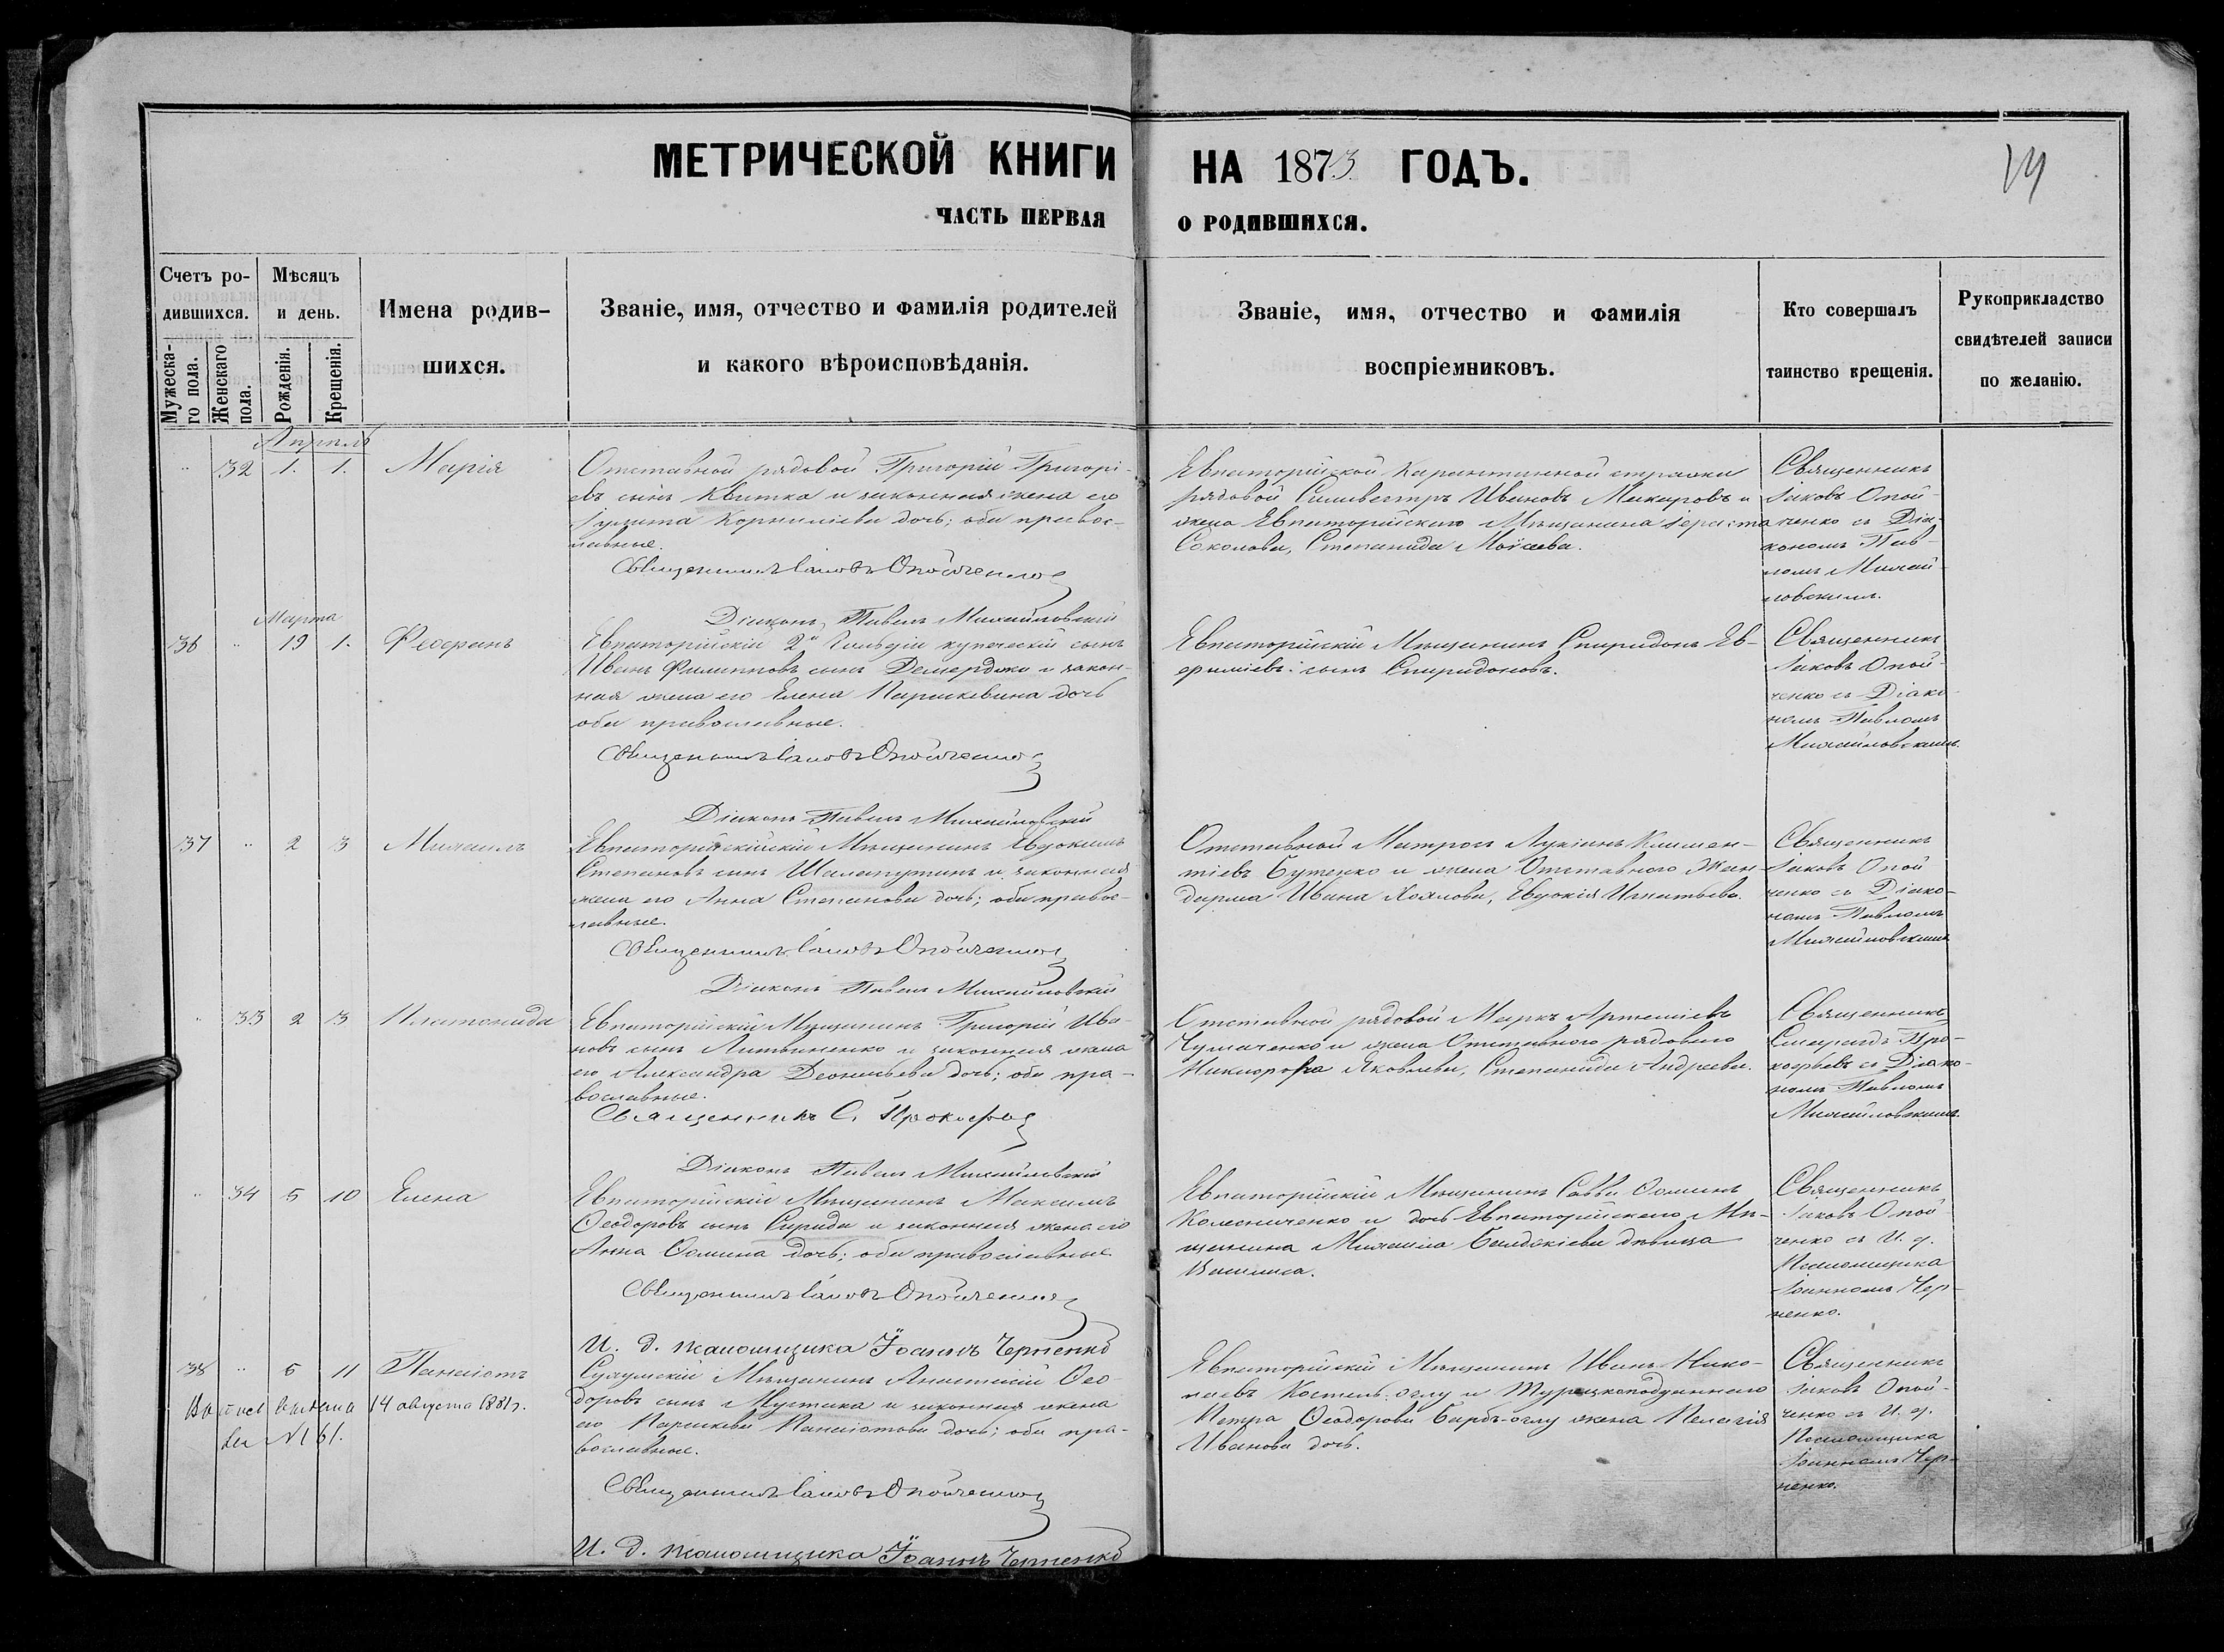 МЕТРИЧЕСКОЙ КНИГИ НА 1873 ГОДЪ.
19
ЧАСТЬ ПЕРВАЯ О РОДИВШИХСЯ.
Счетъ ро-
дившихся.
Мужеска-
го пола.
Женскаго
пола.
Мѣсяцъ
и день.
Рожденія.
Крещенія.
Имена родив-
шихся.
Званіе, имя, отчество и фамилія родителей
и какого вѣроисповѣданія.
Званіе, имя, отчество и фамилія
воспріемниковъ.
Кто совершалъ
таинство крещенія.
Рукоприкладство
свидѣтелей записи
по желанію.
Апрѣль
" 32 1. 1. Марія
Отставной рядовой Григорій Григорі-
евъ сынъ Квитка и законная жена его
Корниліева дочь; оба правос-
лавные.
Священникъ Іаковъ Опойченко
Діаконъ Павелъ Михайловскій
Евпаторійской Карантинной стражи
рядовой Силивестръ Ивановъ Макаровъ и
жена Евпаторійскаго Мѣщанина
Соколова, Степанида Моісеева.
Священникъ
Іаковъ Опой-
ченко съ Діа-
кономъ Пав-
ломъ Михай-
ловскимъ.
Марта
36 " 19 1. Феофанъ
Евпаторійскій 2й Гильдіи купеческій сынъ
Иванъ Филипповъ сынъ Демерджи и закон-
ная жена его Елена Параскевина дочь
оба православные.
Священникъ Іаковъ Опойченко
Діаконъ Павелъ Михайловскій
Евпаторійскій Мѣщанинъ Спиридонъ Ев-
фиміевъ сынъ Спиридоновъ.
Священникъ
Іаковъ Опой-
ченко съ Діако-
номъ Павломъ
Михайловскимъ.
37 " 2 3 Михаилъ
Мѣщанинъ Евдокимъ
Степановъ сынъ Шалапутинъ и законная
жена его Анна Степанова дочь; оба правос-
лавные.
Священникъ Іаковъ Опойченко
Діаконъ Павелъ Михайловскій
Отставной Матросъ Лукіанъ Климен-
тіевъ Бутенко и жена Отставного Жан-
дарма Ивана Хохлова, Евдокія Игнатьева.
Священникъ
Іаковъ Опой
ченко съ Діако-
номъ Павломъ
Михайловскимъ
" 33 2 3 Платонида
Евпаторійскій Мѣщанинъ Григорій Ива-
новъ сынъ Литвиненко и законная жена
его Александра Деонисьева дочь; оба пра-
вославные.
Священникъ С. Прокофьев
Діаконъ Павелъ Михайловскій
Отставной рядовой Маркъ Артеміевъ
Чумаченко и жена Отставного рядового
Никифора Яковлева, Степанида Андреева.
Священникъ
Смарагдъ Про-
кофьевъ съ Діако-
номъ Павломъ
Михайловскимъ.
" 34 5 10 Елена
Евпаторійскій Мѣщанинъ Максимъ
Ѳеодоровъ сынъ Сирида и законная жена его
Анна Ѳомина дочь; оба православные
Священникъ Іаковъ Опойченко
И. д. псаломщика Іоаннъ Черненко
Евпаторійскій Мѣщанинъ Савва Ѳоминъ
Колесниченко и дочь Евпаторійскаго Мѣ-
щанина Михаила девица
Василиса.
Священникъ
Іаковъ Опой
ченко съ И. д.
Псаломщика
Іоанномъ Чер-
ненко.
38 " 6 11 Панаіотъ
14 августа 1881 г.
за № 161.
Мѣщанинъ Анастасій Ѳео-
доровъ сынъ и законная жена
его Параскева Панаіотова дочь; оба пра-
вославные.
Священникъ Іаковъ Опойченко
И. д. псаломщика Іоаннъ Черненко
Евпаторійскій Мѣщанинъ Иванъ Нико-
лаевъ и Турецкоподданнаго
Петра Ѳеодорова жена Пелагія
Иванова дочь.
Священникъ
Іаковъ Опой-
ченко съ И. д.
Псаломщика
Іоанномъ Чер-
ненко.